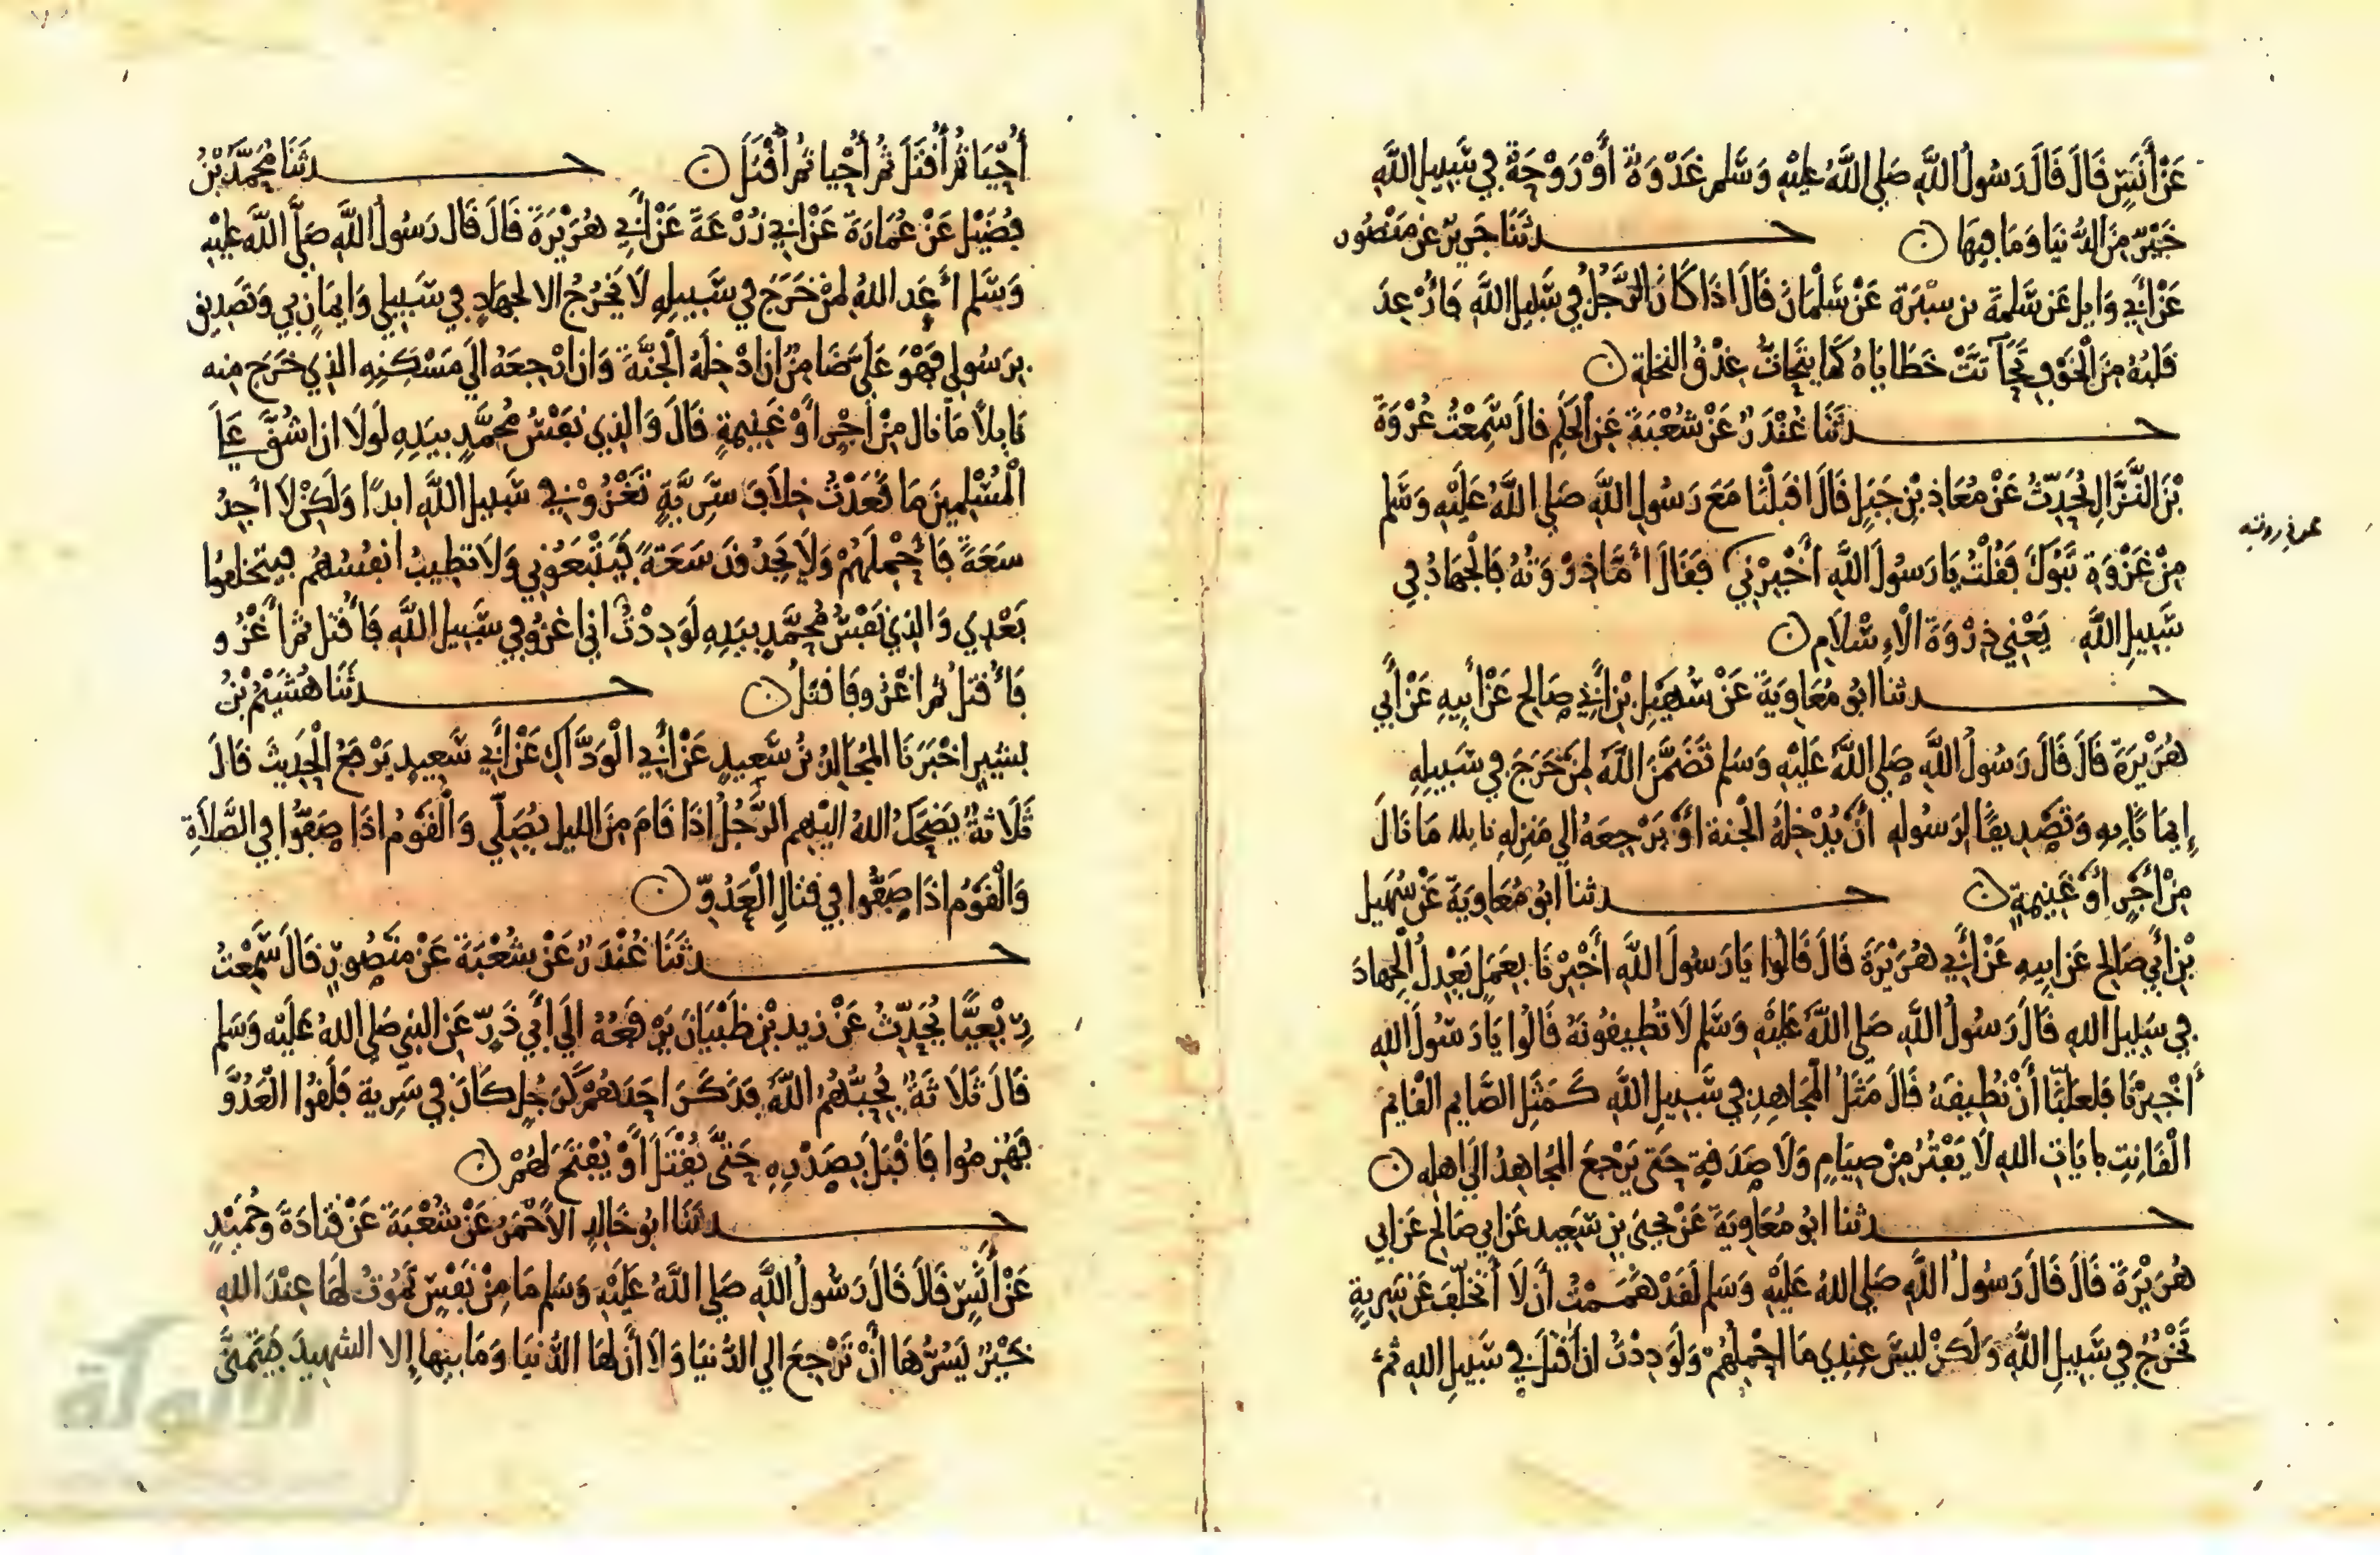 عَنْ أَنَسٍ قَالَ قَالَ رَسُولُ اللَّهِ صَلى اللَّهُ عَلَيْهِ وَسَّلم غَدْوَةٌ أَوْ رَوْحَةٌ فِي سَّبِيلِ اللَّهِ
خَيْرٌ مِنَ الدُّنيَا وَمَا فِيهَا ن حـدثَنَا جَرِيرٌ عَن مَنْصُورٍ
عَنْ أَبِي وَايل عَن سَّلمةَ بن سبْرَةَ عَنْ سَّلْمَانَ قَالَ اذَا كَانَ الرَّجُلُ فِي سَّبِيلِ اللَّهِ فَأُرْعِدَ
قَلبُهُ مِنَ الْخَوْفِ تَحَاتَتْ خَطَايَاهُ كَمَا يتَحَاتُّ عِذْقُ النخلةِ ن
حـدثَنَا غُنْدَرٌ عَنْ شُعْبَةَ عَنِ الحَكَمِ قالَ سَّمِعْتُ عُرْوَةَ
بْنَ النَّزَّالِ يُحَدِّثُ عَنْ مُعَاذِ بْنِ جَبَلٍ قَالَ اقبَلْنَا مَعَ رَسُولِ اللَّهِ صَلى اللَّهُ عَلَيْهِ وَسَّلم
مِنْ غَزْوَةِ تَبُوكَ فَقُلْتُ يَا رَسُولَ اللَّهِ أَخْبِرْنِي فَقَالَ أَمَّا ذِرْوَتُهُ فَالْجِهَادُ فِي
سَّبِيلِ اللَّهِ يَعْنِي ذِرْوَةَ الْإِسْلَامِ ن
حـدثنا ابو مُعَاوِيَةَ عَنْ سُهَيْلِ بْنِ أَبِي صَالِحٍ عَنْ أَبِيهِ عَنْ أَبِي
هُرَيْرَةَ قَالَ قَالَ رَسُولُ اللَّهِ صَلى اللَّهُ عَلَيْهِ وَسَلم تَضَمَّنَ اللَّهُ لِمَنْ خَرَجَ فِي سَّبِيلِهِ
إِيمَانًا بِهِ وَتَصْدِيقًا لِرَسُولِهِ أَنْ يُدْخِلَهُ الْجنة أَوْ يَرْجِعَهُ الى مَنزِلهِ نايله مَا نَالَ
مِنْ أَجْرٍ أَوْ غَنِيمَةٍ ن حـدثنا أَبُو مُعَاوِيَةَ عَنْ سُهَيل
بْنِ أَبِي صَالِحٍ عَن ابِيهِ عَنْ أَبِي هُرَيْرَةَ قَالَ قَالُوا يَا رَسُولَ اللَّهِ أَخْبِرْنَا بِعَمَلٍ يَعْدِلُ الْجِهَادَ
فِي سَبِيلِ اللهِ قَالَ رَسُولُ اللَّهِ صَلى اللَّهُ عَلَيْهِ وَسَّلم لَا تُطِيقُونَهُ قَالُوا يَا رَسُولَ اللهِ
أَخْبِرْنَا فَلعَلَّنَا أَنْ نُطِيقَهُ قَالَ مَثَلُ الْمُجَاهِدِ فِي سَّبِيلِ اللَّهِ كَمَثَلِ الصَّايمِ القَايمِ
الْقَانِتِ بايَاتِ اللهِ لَا يَفْتُرُ مِنْ صِيَامٍ وَلَا صَدَقةٍ حَتى يَرْجِعَ الْمُجَاهِدُ الَى اهلِهِ ن
حـدثنا ابُو مُعَاوِيَةَ عَنْ يحيَى بنِ سَّعِيد عَن ابي صَالِح عَن ابي
هُرَيْرَةَ قَالَ قَالَ رَسُولُ اللَّهِ صَلى اللهُ عَلَيْهِ وَسَلم لَقَدْ هَمَمْتُ أَن لَا أَتَخَلَّفَ عَن سَرِيةٍ
تَخْرُجُ فِي سَّبِيلِ اللَّهِ وَلَكِنْ لَيسَّ عِندِي مَا احْمِلُهُمْ وَلَوَدِدْتُ انى أُقتَلُ فِي سَّبيلِ اللهِ ثمّ
أُحْيَا ثُمَّ أُقتَلُ ثُمَّ أُحْيا ثمَّ أُقْتَلُ ن حـدثَنَا مُحَمَّدُ بْنُ
فُضَيْل عَنْ عُمَارَةَ عَنْ ابِي زُرْعَةَ عَنْ أَبِي هُرَيْرَةَ قَالَ قَال رَسُولُ اللَّهِ صَلَّى اللَّهُ عَلَيْهِ
وَسَّلم أَعَد اللهُ لِمَنْ خَرَجَ فِي سَّبِيلِهِ لَا يَخْرُجُ الا لجِهَادٍ فِي سَبِيلِي وَايمَانٍ بِي وَتَصْدِيق
بِرَسُولِي فَهْوَ عَلَيَّ ضَامِنٌ ان ادْخِلَهُ الْجَنَّةَ وَان ارْجِعَهُ الَى مَسْكَنِهِ الذِي خَرَجَ مِنه
نَايلاً مَا نال مِنْ أَجْرٍ أَوْ غَنِيمةٍ قَالَ وَالذِي نفْسُ مُحمَّدٍ بيَدِهِ لَولَا ان اشُقَّ عَلَى
الْمُسْلِمِينَ مَا قَعَدْتُ خِلَافَ سَرِيَّةٍ تَغْزُوْ فِي سَّبِيلِ اللَّهِ ابدًا وَلَكِنْ لَا أَجِدُ
سَعَةً فَأَحْمِلَهُمْ وَلَا يَجِدُونَ سَعَةً فَيَتْبَعُونِي وَلَا تطِيبُ انفُسُهُم فيتَخلفُوا
بَعْدِي وَالذِي نَفْسُ مُحمَّدٍ بيَدِهِ لَوَدِدْتُ انى اغزُو فِي سَّبِيلِ اللَّهِ فَأُقْتَل ثمَّ أَغْزُو
فَأُقتَلُ ثمّ اغْزو فَاقتَلُ ن حـدثَنَا هُشَيْمُ بْنُ
بشِيرٍ اخْبَرَنَا المُجَالِدُ بْنُ سَّعِيدٍ عَنْ أَبِي الْوَدَّاكِ عَنْ أَبِي سَّعِيدٍ يَرْفَعُ الْحَدِيثَ قَالَ
ثَلَاثةٌ يَضْحَكُ اللهُ الَيْهِم الرَّجُلُ اذَا قَامَ مِنَ الليلِ يُصَلّي وَالْقَوْمُ اذَا صَفُّوا فِي الصَّلَاةِ
وَالْقَوْمُ اذَا صَفُّوا فِي قتَالِ الْعَدُوّ ن
حـدثَنَا غُنْدَرٌ عَنْ شُعْبَةَ عَنْ مَنْصُورٍ قَالَ سَّمِعْتُ
رِبْعِيًّا يُحَدِّثُ عَنْ زيدِ بْنِ ظَبْيَانَ يَرْفَعُهُ الَى أَبِي ذَرٍّ عَنِ النبيِ صَلى اللهُ عَلَيْهِ وَسَلم
قَالَ ثَلَاثَةٌ يُحِبُّهُمُ اللَّهُ فَذَكَرَ احَدَهُمْ رَجُلٍ كَانَ فِي سَرِية فَلَقُوا الْعَدُوَّ
فَهُزِمُوا فَاقْبَلَ بِصَدْرِهِ حَتَّى يُقْتَلَ أَوْ يُفْتَحَ لَهُمْ ن
حـدثَنَا ابُو خَالِدٍ الأَحْمَرُ عَنْ شُعْبَةَ عَنْ قتَادَةَ وَحُمَيْدٍ
عَنْ أَنَسٍ قَالَا قَالَ رَسُولُ اللَّهِ صَلى اللَّهُ عَلَيْهِ وَسَلم مَا مِنْ نَفْسٍ تَمُوتُ لَهَا عِنْدَ اللهِ
خَيْرٌ يَسُرُّهَا أَنْ تَرْجِعَ الى الدُّنيَا وَلَا أَن لَهَا الدُّنيَا وَمَا فيهَا إِلا الشهِيدَ يَتَمَنَّى
الألوكة